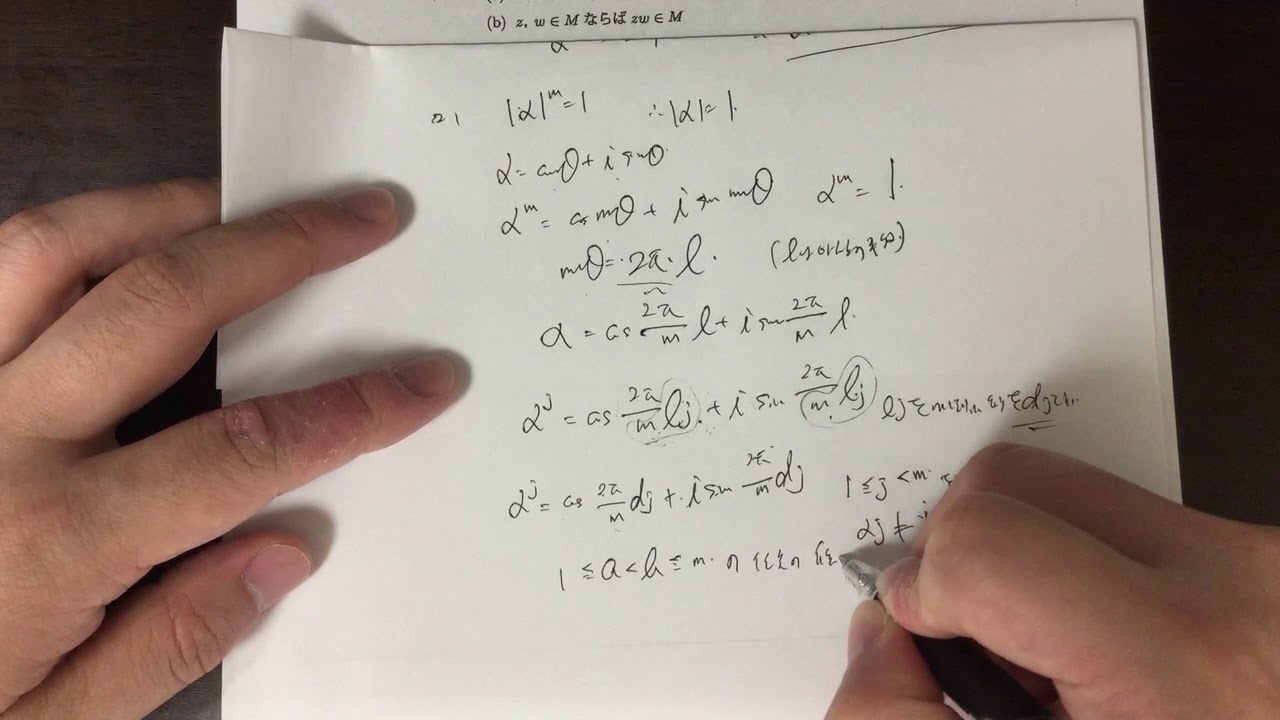 (b) z, w ∈ M ならば zw ∈ M
|α|^m = 1 ∴ |α| = 1.
α = cosθ + i sinθ
α^m = cos mθ + i sin mθ α^m = 1.
mθ = 2π・l.
α = cos 2π/m l + i sin 2π/m l.
α^j = cos 2π/m lj + i sin 2π/m lj ljを
α^j = cos 2π/m dj + i sin 2π/m dj 1 ≦ j < m
αj ≠
1 ≦ a < b ≦ m の